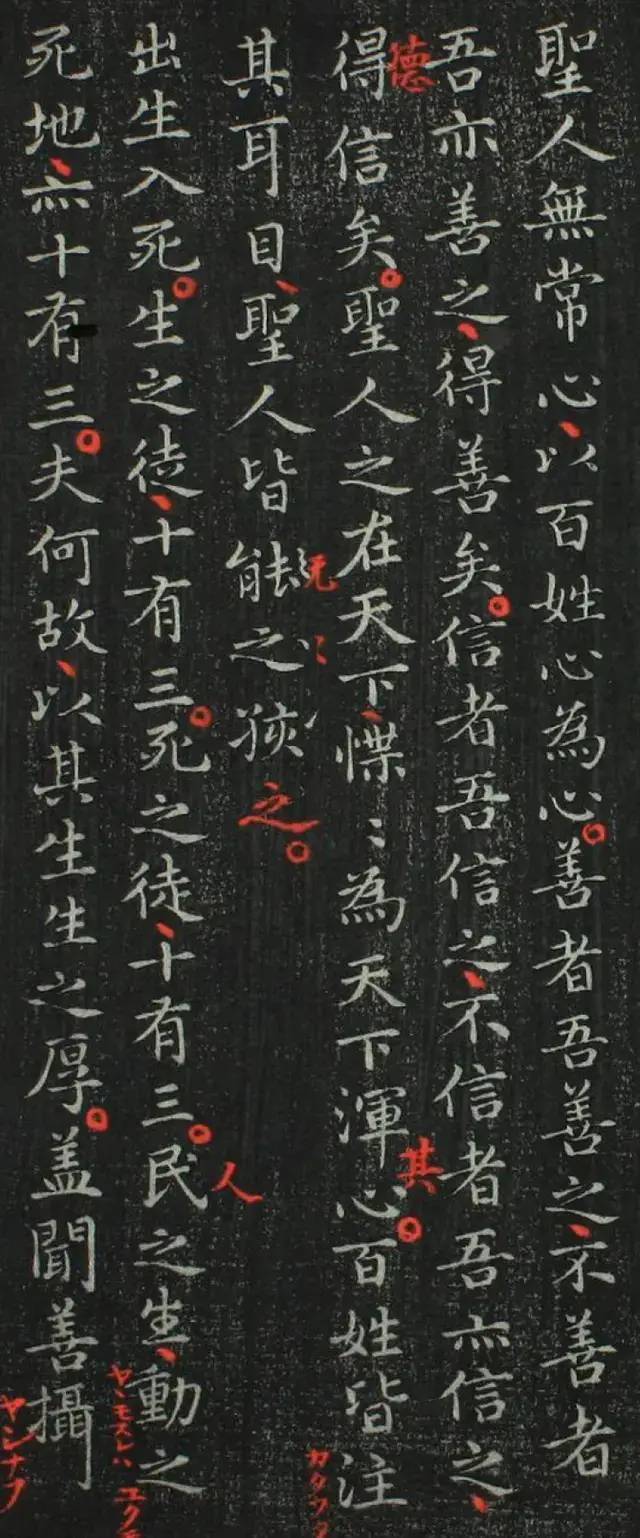 聖人無常心、以百姓心為心。善者吾善之、不善者
吾亦善之、得善矣。信者吾信之、不信者吾亦信之、
德
其
得信矣。聖人之在天下、惵〻為天下渾心。百姓皆注
其耳目、聖人皆能之孩之。
人
出生入死。生之徒、十有三。死之徒、十有三。民之生、動之
ヤヽモスレハ
死地、亦十有三。夫何故、以其生生之厚。盖聞善攝
ヤシナフ